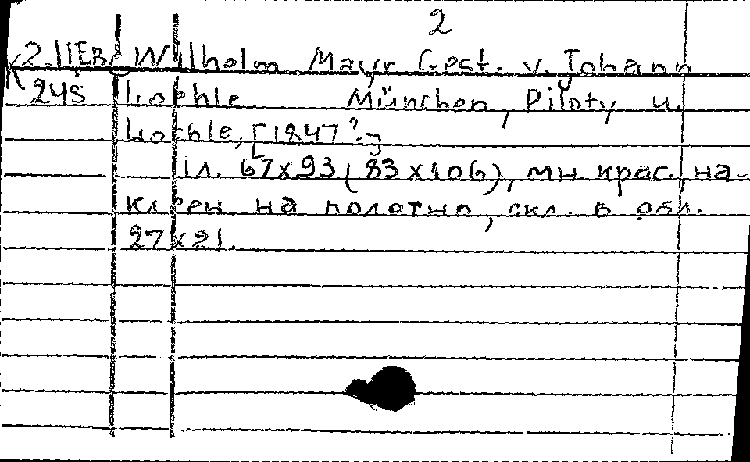 2
К2.IIЕВ/ Wilhelm Mayr Gest. v. Johann
245 Lochle München, Piloty u.
Lochle, [1847?]
1л. 67х93 (83х106), мн. крас., на-
клеен на полотно, скл. в обл.
27х21.